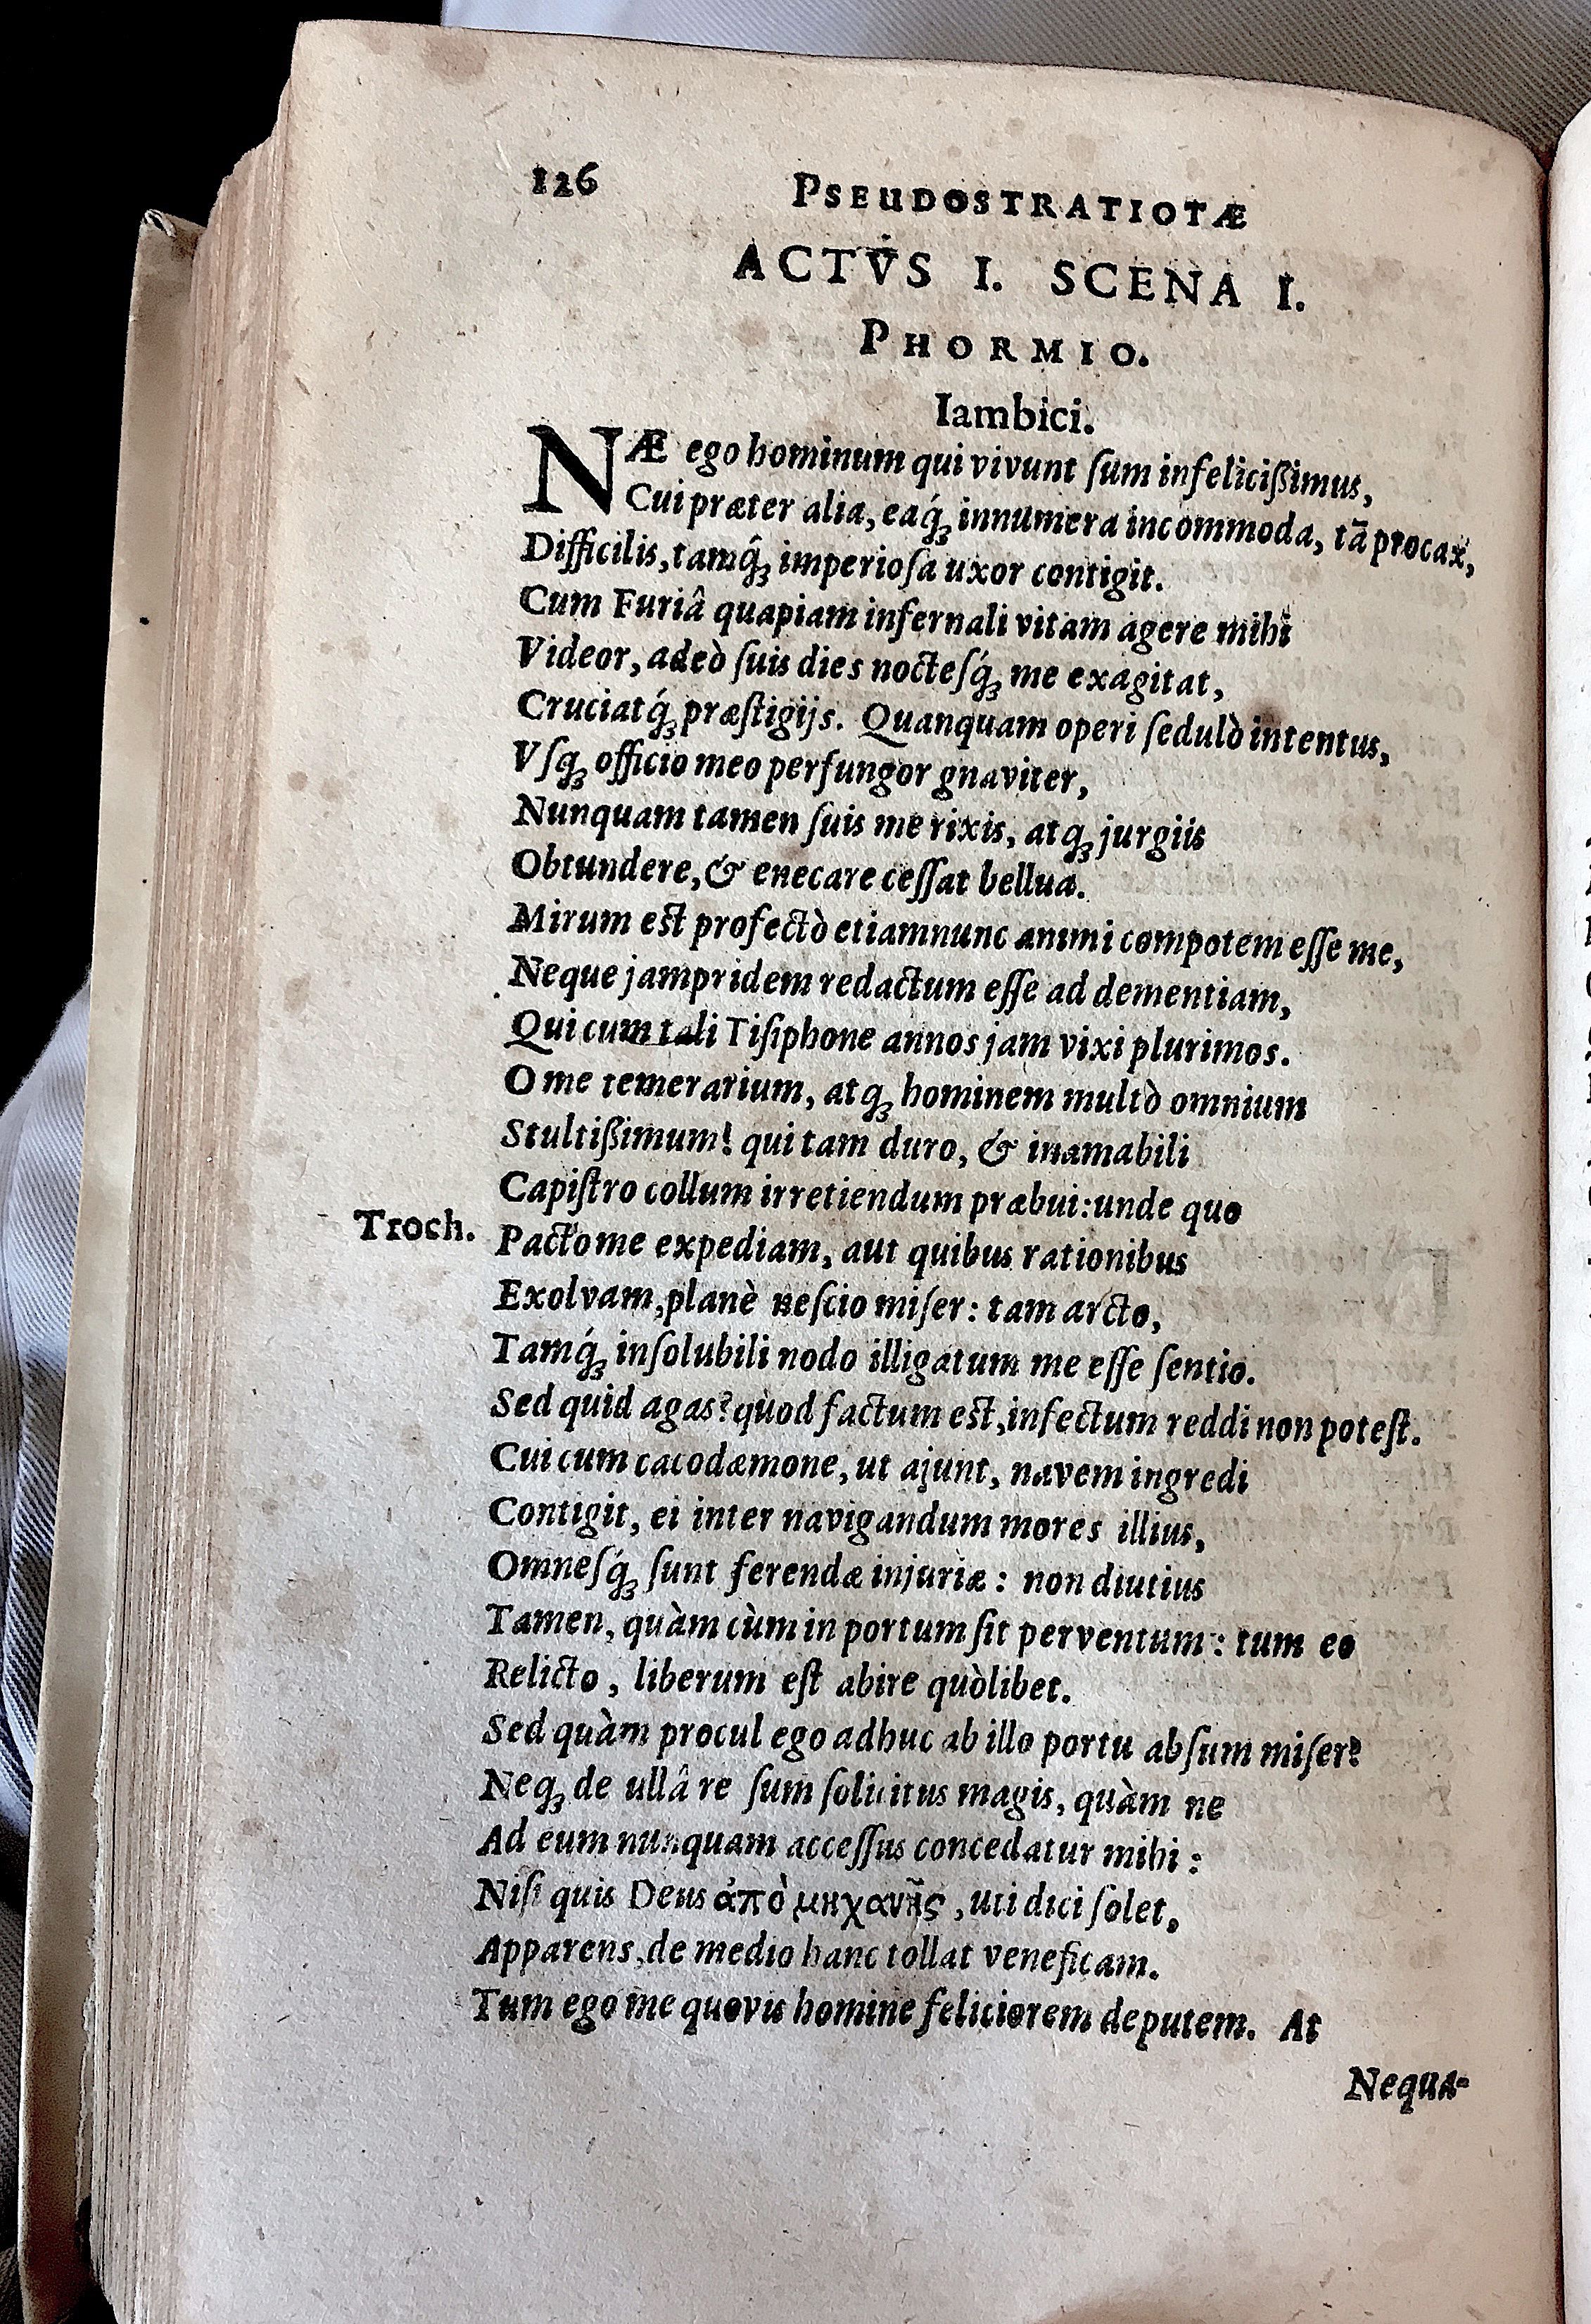 126 PSEUDOSTRATIOTÆ
ACTVS I. SCENA I.
PHORMIO.
Iambici.
NÆ ego hominum qui vivunt ſum infeliciſsimus,
Cui præter alia, eaq́ꝫ innumera incommoda, tā procax,
Difficilis, tamq́ꝫ imperioſa uxor contigit.
Cum Furiâ quapiam infernali vitam agere mihi
Videor, adeò ſuis dies nocteſq́ꝫ me exagitat,
Cruciatq́ꝫ præſtigijs. Quanquam operi ſedulò intentus,
Vſqꝫ officio meo perfungor gnaviter,
Nunquam tamen ſuis me rixis, atqꝫ jurgiis
Obtundere, & enecare ceſſat bellua.
Mirum est profectò etiamnunc animi compotem eſſe me,
Neque jampridem redactum eſſe ad dementiam,
Qui cum tali Tiſiphone annos jam vixi plurimos.
O me temerarium, atqꝫ hominem multò omnium
Stultiſsimum! qui tam duro, & inamabili
Capiſtro collum irretiendum præbui: unde quo
Troch. Pacto me expediam, aut quibus rationibus
Exolvam, planè neſcio miſer: tam arcto,
Tamq́ꝫ inſolubili nodo illigatum me eſſe ſentio.
Sed quid agas? quod factum est, infectum reddi non poteſt.
Cui cum cacodæmone, ut ajunt, navem ingredi
Contigit, ei inter navigandum mores illius,
Omneſq́ꝫ ſunt ferendæ injuriæ: non diutius
Tamen, quàm cùm in portum ſit perventum: tum eo
Relicto, liberum eſt abire quòlibet.
Sed quàm procul ego adhuc ab illo portu abſum miſer?
Neqꝫ de ullâ re ſum ſolicitus magis, quàm ne
Ad eum nunquam acceſſus concedatur mihi:
Niſi quis Deus ἀπὸ μηχανῆς, uti dici ſolet,
Apparens, de medio hanc tollat veneficam.
Tum ego me quovis homine feliciorem deputem. At
Nequa-